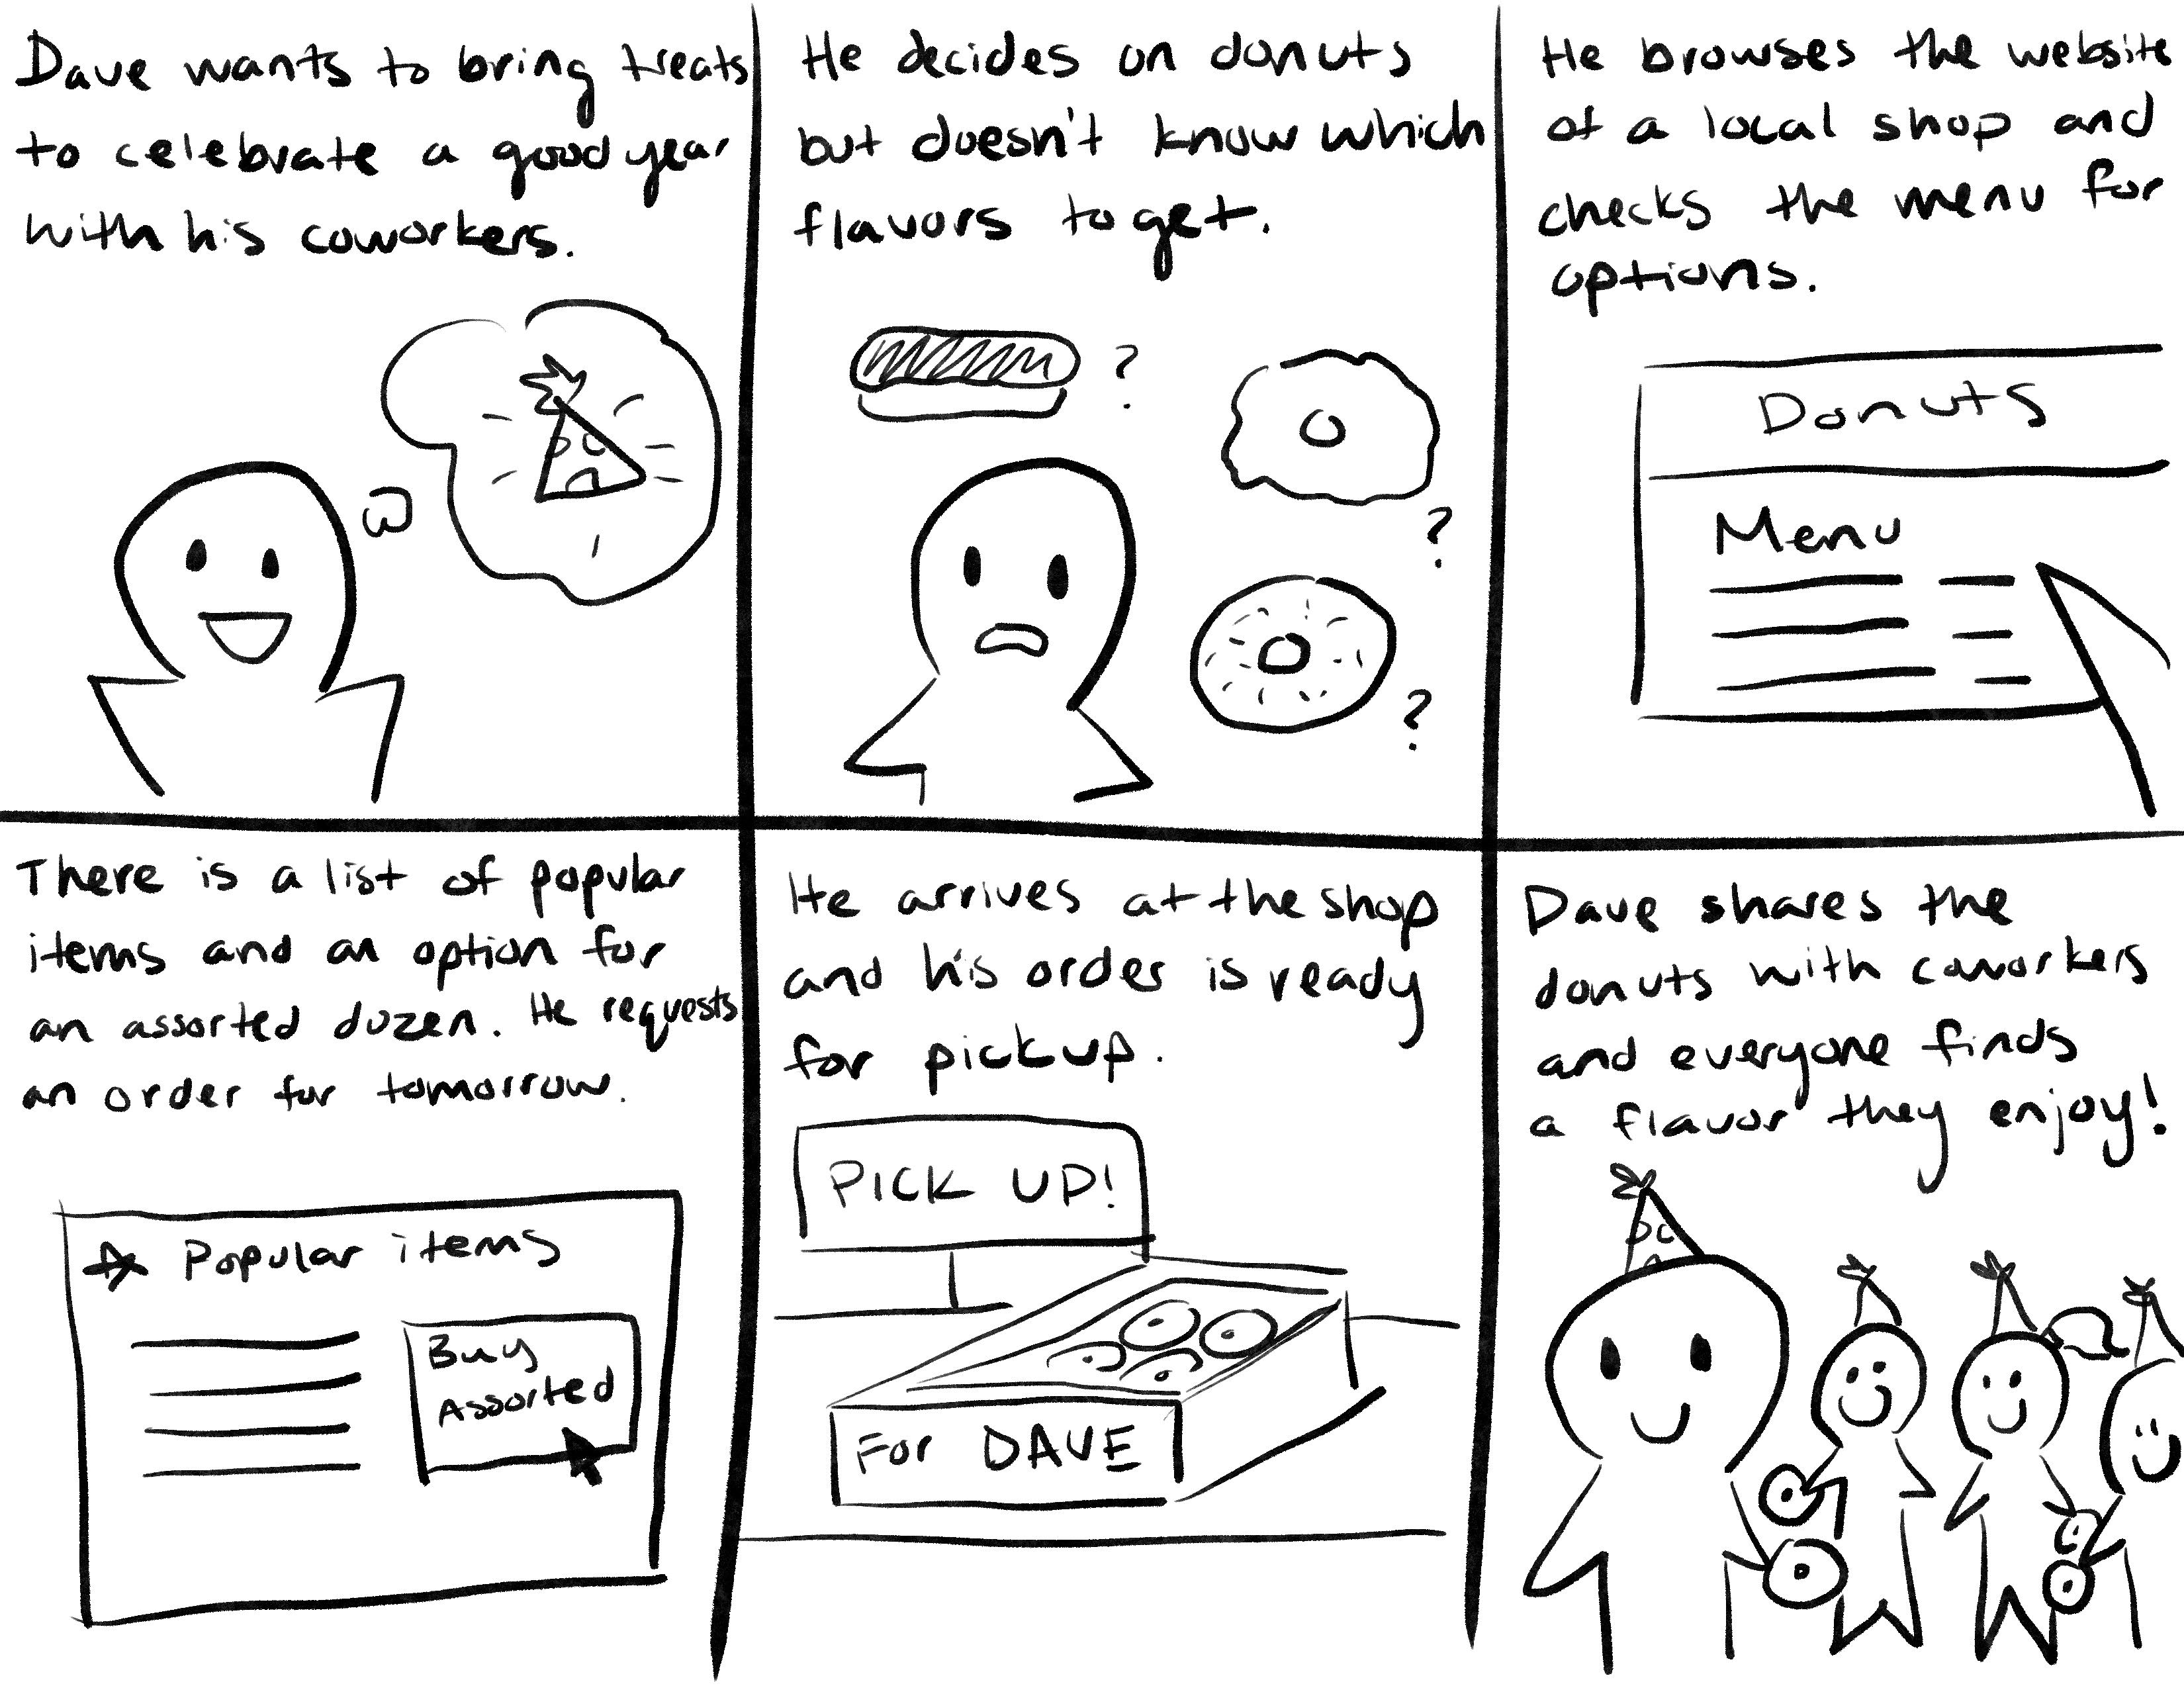 Dave wants to bring treats
to celebrate a good year
with his coworkers.
He decides on donuts
but doesn't know which
flavors to get.
?
?
?
He browses the website
of a local shop and
checks the menu for
options.
Donuts
Menu
There is a list of popular
items and an option for
an assorted dozen. He requests
an order for tomorrow.
Popular items
Buy
Assorted
He arrives at the shop
and his order is ready
for pickup.
PICK UP!
For DAVE
Dave shares the
donuts with coworkers
and everyone finds
a flavor they enjoy!